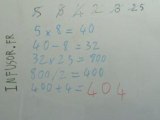 5 8 4 2 8 25
5 x 8 = 40
40 - 8 = 32
32 x 25 = 800
800/2 = 400
400 + 4 = 404
INFUSOIR.FR